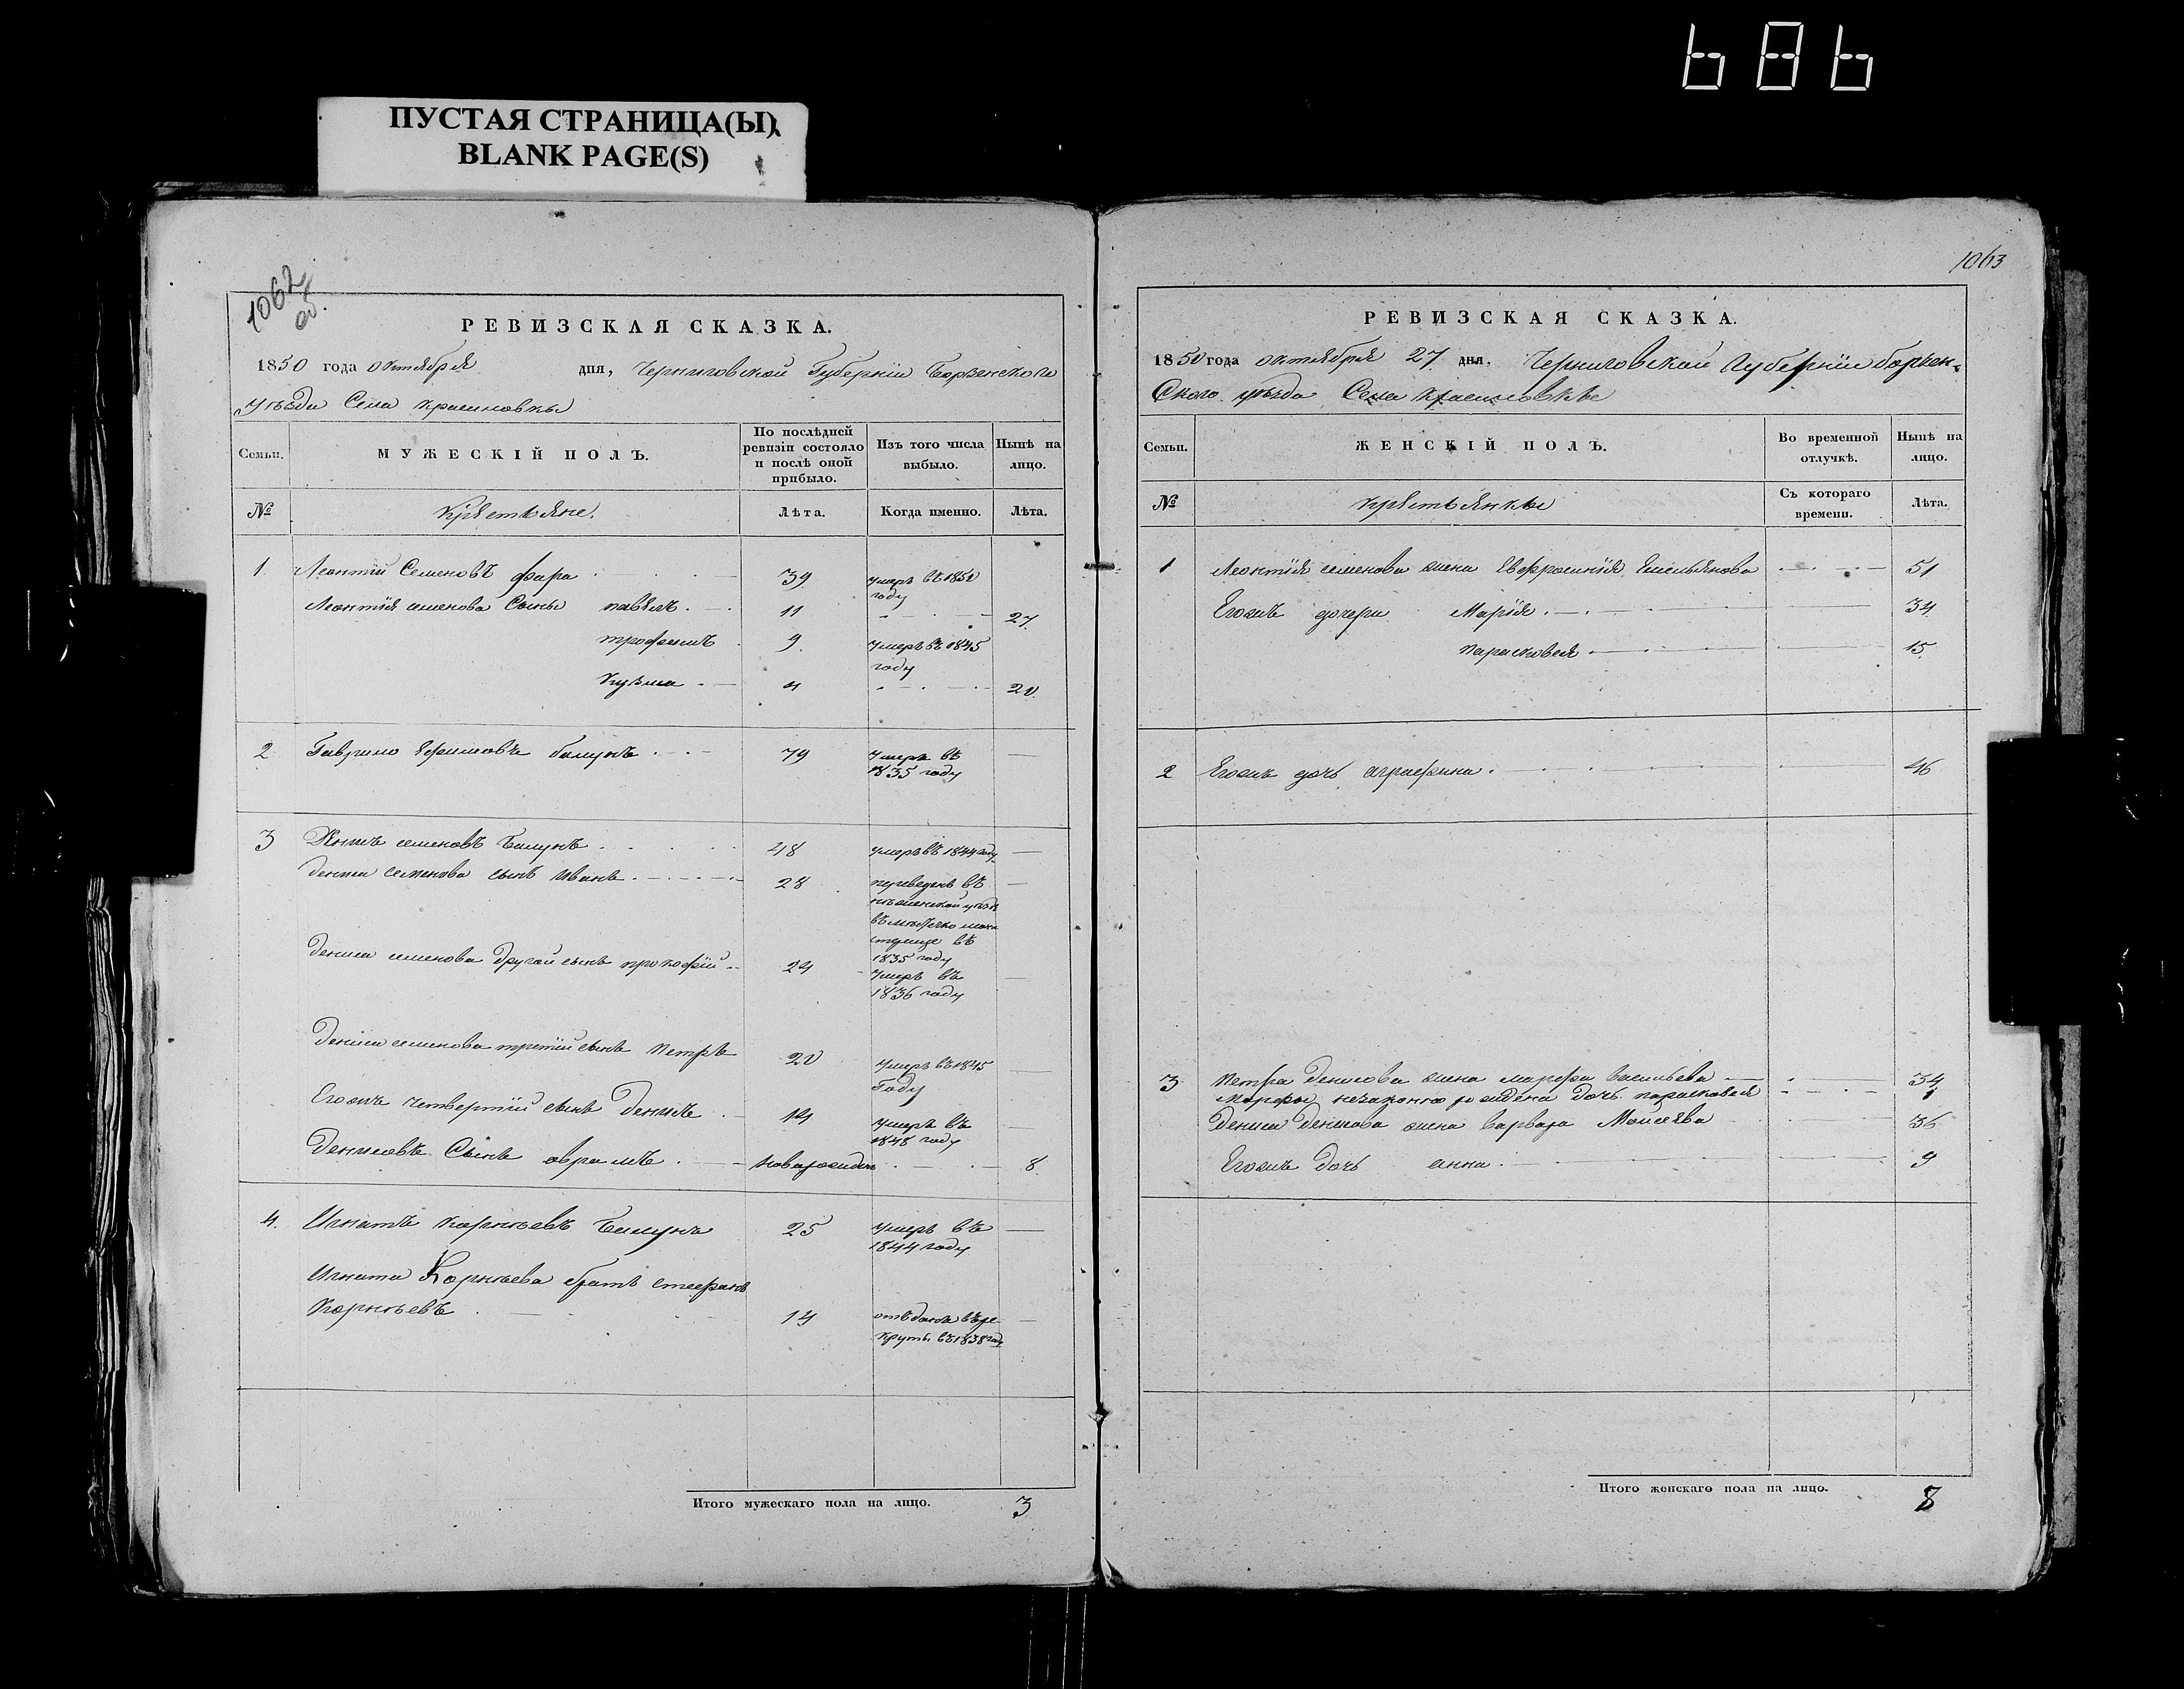 686
ПУСТАЯ СТРАНИЦА(Ы)
BLANK PAGE(S)
1062
об.
РЕВИЗСКАЯ СКАЗКА.
1850 года октября дня, Черниговской Губерніи Борзенского
уѣзда Села Красиловки
Семьи. МУЖЕСКІЙ ПОЛЪ. По послѣдней ревизіи состояло и послѣ оной прибыло. Изъ того числа выбыло. Нынѣ на лицо.
№ Крестьяне. Лѣта. Когда именно. Лѣта.
1. Леонтій Семеновъ фара 39 умеръ въ 1850 году
Леонтія семенова Сыны павелъ 11 27
трофимъ 9 умеръ въ 1845 году
Кузма 4 20
2 Гаврило Ефимовъ 79 умеръ въ 1835 году
3 семеновъ 48 умеръ въ 1844 году
Дениса Семенова сынъ Иванъ 28 переведенъ въ
въ
1835 году
Дениса семенова другой сынъ прокофій 24 умеръ въ
1836 году
Дениса семенова третій сынъ петръ 20 умеръ въ 1845
Году
Егожъ четвертый сынъ Денисъ 14 умеръ въ
1848 году
Денисовъ Сынъ аврамъ новорожденъ 8
4. Игнатъ корнѣевъ 25 умеръ въ
1844 году
Игната Корнѣева братъ стефанъ
Корнѣевъ 14 отъданъ въ ре
круты въ 1838 году
Итого мужескаго пола на лицо. 3
1063
РЕВИЗСКАЯ СКАЗКА.
1850 года октября 27 дня, Черниговской Губерніи борзен-
Ского уѣзда Села Красиловкѣ
Семьи. ЖЕНСКІЙ ПОЛЪ. Во временной отлучкѣ. Нынѣ на лицо.
№ крестьянкы Съ котораго времени. Лѣта.
1 Леонтія семенова жена Евфросинія Емельянова 51
Егожъ дочери Марія 34
парасковея 15
2 Егожъ дочь аграфина 46
3 петра денисова жена марфа васильева 34
Марфы незаконно рождена дочь парасковея 1
Дениса Денисова жена варвара Моисѣева 36
Егожъ дочь анна 9
Итого женскаго пола на лицо. 8